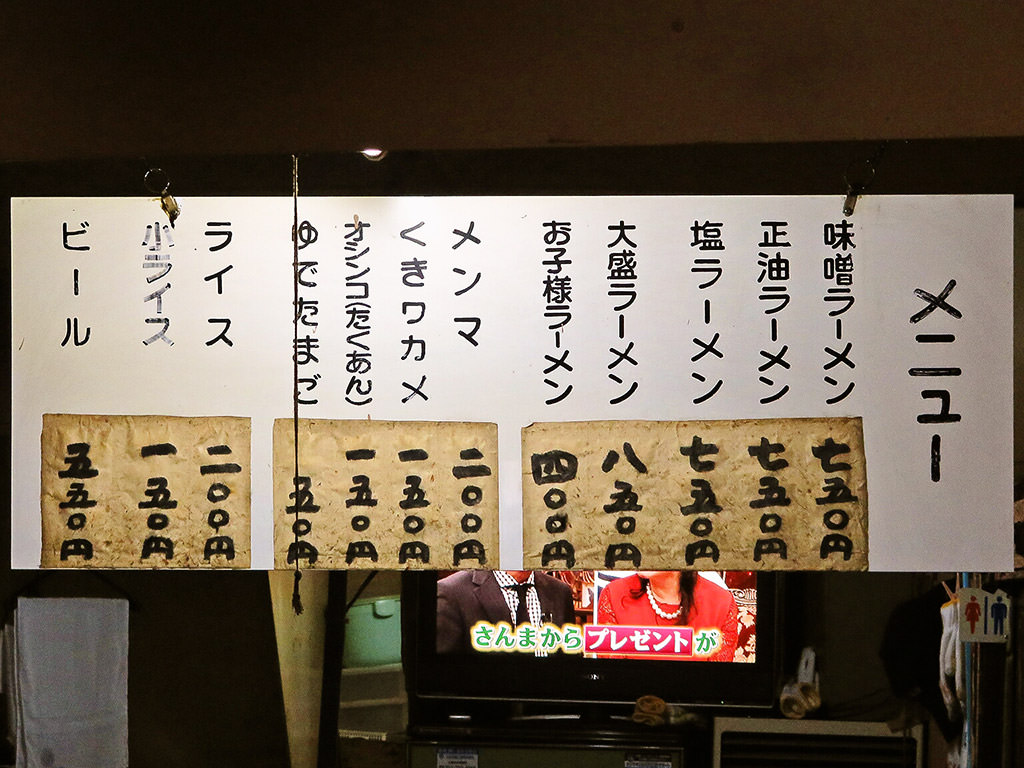 メニュー
味噌ラーメン 七五〇円
正油ラーメン 七五〇円
塩ラーメン 七五〇円
大盛ラーメン 八五〇円
お子様ラーメン 四〇〇円
メンマ 二〇〇円
くきワカメ 一五〇円
オシンコ(たくあん) 一五〇円
ゆでたまご 五〇円
ライス 二〇〇円
小ライス 一五〇円
ビール 五五〇円
さんまからプレゼントが
SONY